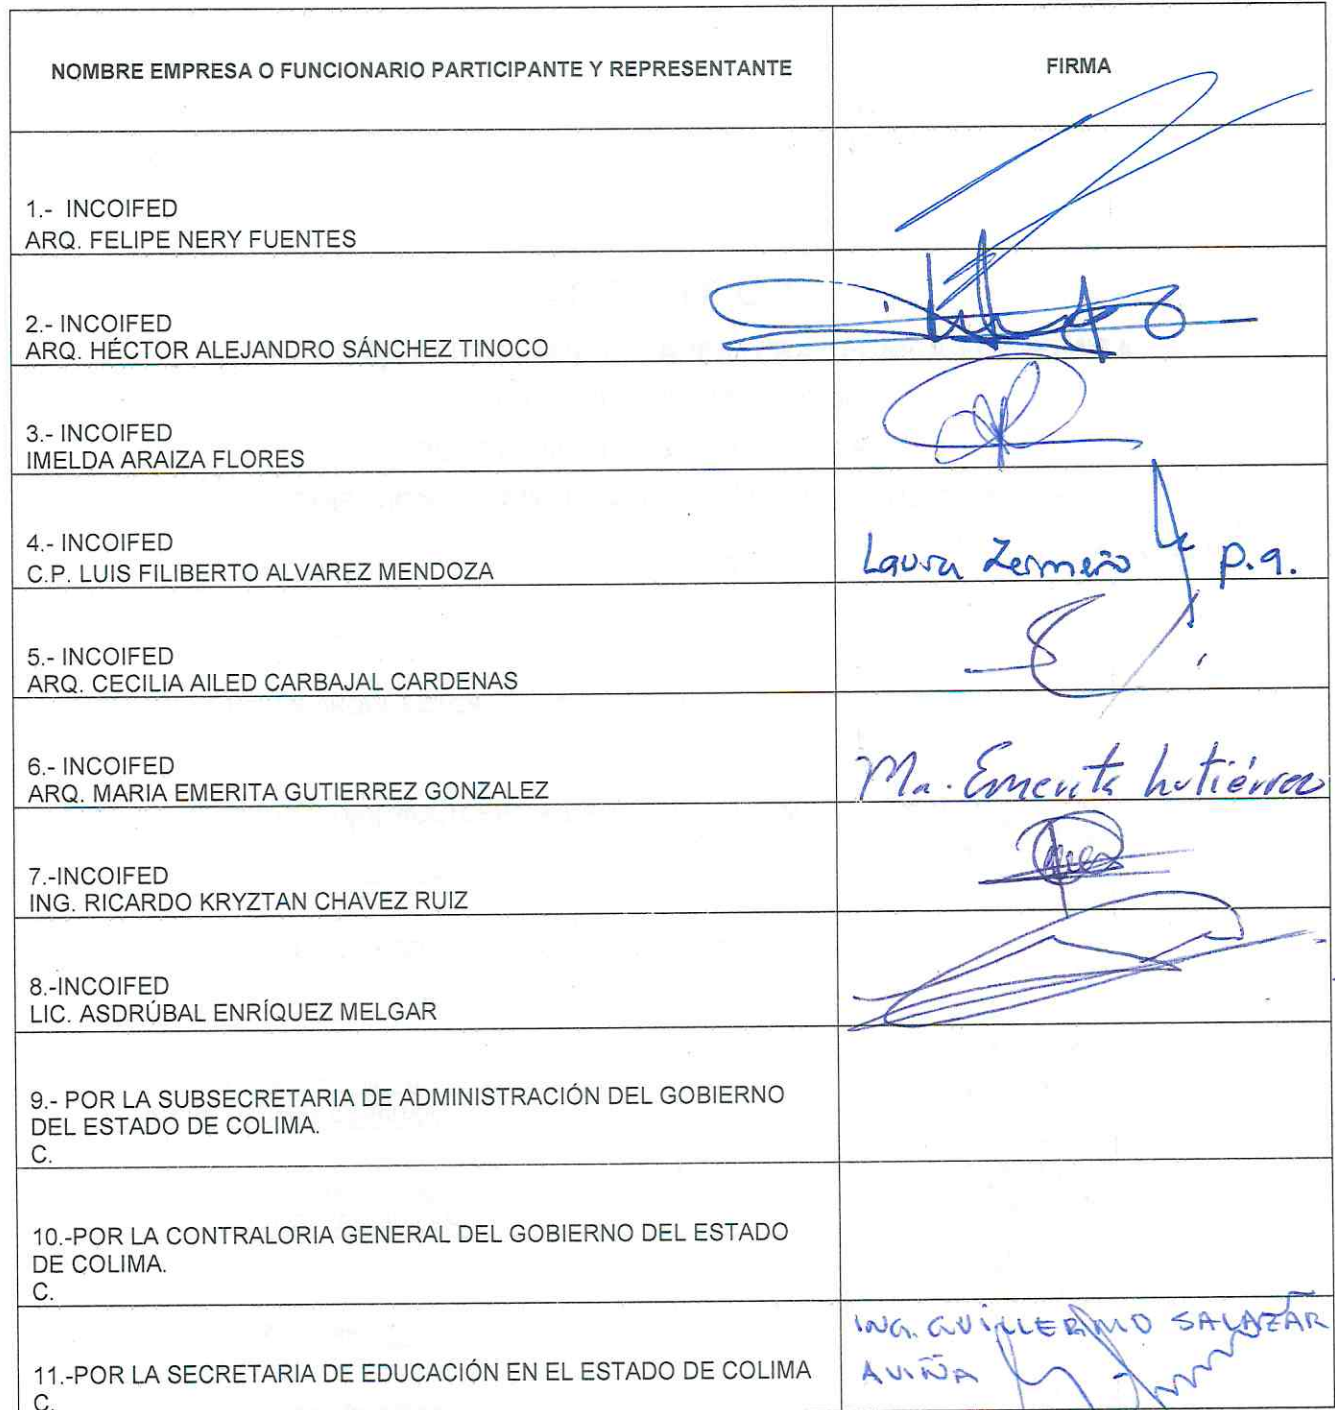 NOMBRE EMPRESA O FUNCIONARIO PARTICIPANTE Y REPRESENTANTE
FIRMA
1.- INCOIFED
ARQ. FELIPE NERY FUENTES
2.- INCOIFED
ARQ. HÉCTOR ALEJANDRO SÁNCHEZ TINOCO
3.- INCOIFED
IMELDA ARAIZA FLORES
4.- INCOIFED
C.P. LUIS FILIBERTO ALVAREZ MENDOZA
Laura Zermeño p.a.
5.- INCOIFED
ARQ. CECILIA AILED CARBAJAL CARDENAS
6.- INCOIFED
ARQ. MARIA EMERITA GUTIERREZ GONZALEZ
Ma. Emerita Gutiérrez
7.-INCOIFED
ING. RICARDO KRYZTAN CHAVEZ RUIZ
8.-INCOIFED
LIC. ASDRÚBAL ENRÍQUEZ MELGAR
9.- POR LA SUBSECRETARIA DE ADMINISTRACIÓN DEL GOBIERNO
DEL ESTADO DE COLIMA.
C.
10.-POR LA CONTRALORIA GENERAL DEL GOBIERNO DEL ESTADO
DE COLIMA.
C.
11.-POR LA SECRETARIA DE EDUCACIÓN EN EL ESTADO DE COLIMA
C.
ING. GUILLERMO SALAZAR
AVIÑA